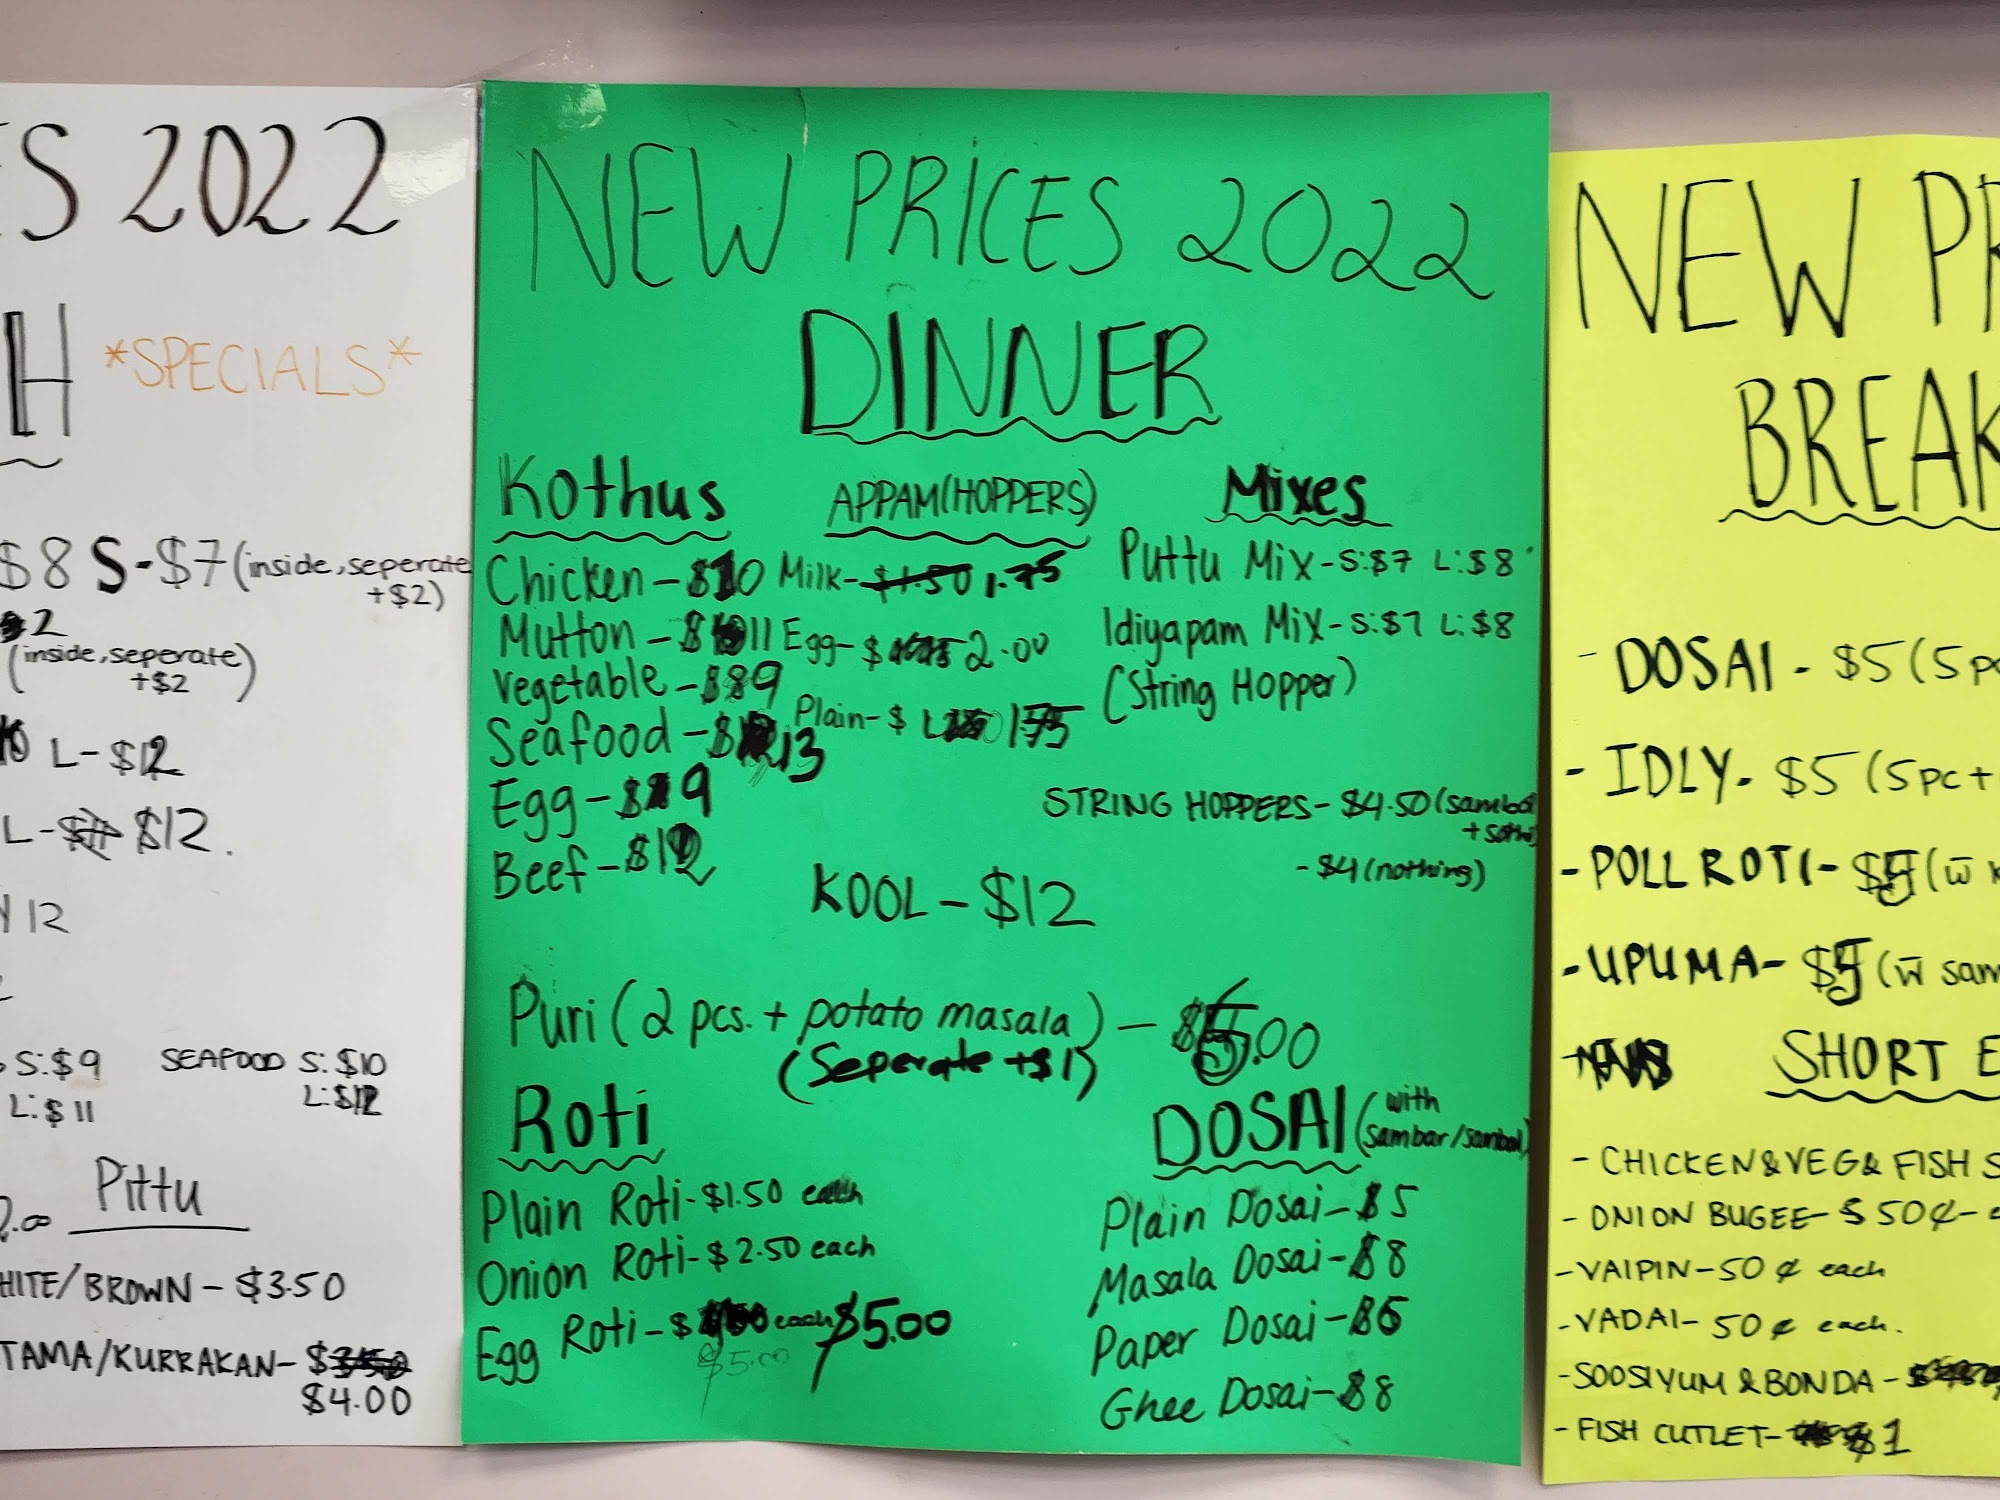 ES 2022
H *SPECIALS*
$8 S-$7 (inside, seperate
+$2)
2
(inside, seperate)
+$2
L-$12
L- $12.
12
S:$9 SEAFOOD S:$10
L:$11 L:$12
Pittu
HITE/BROWN - $3.50
TAMA/KURRAKAN- $3.50
$4.00
NEW PRICES 2022
DINNER
Kothus
Chicken - $10
Mutton - $11
Vegetable - $9
Seafood - $13
Egg - $9
Beef - $12
APPAM (HOPPERS)
Milk- $1.50 1.75
Egg- $ 2.00
Plain- $ 1.75
Mixes
Puttu Mix - S:$7 L:$8
Idiyapam Mix - S:$7 L:$8
(String Hopper)
STRING HOPPERS - $4.50 (sambol
+ sothi)
- $4 (nothing)
KOOL - $12
Puri (2 pcs. + potato masala) - $6.00
(Seperate +$1)
Roti
Plain Roti - $1.50 each
Onion Roti - $2.50 each
Egg Roti - $ each $5.00
$5.00
DOSAI (with
sambar/sambol)
Plain Dosai - $5
Masala Dosai - $8
Paper Dosai - $6
Ghee Dosai - $8
NEW PR
BREAK
- DOSAI - $5 (5 pc
- IDLY - $5 (5 pc +
- POLL ROTI - $5 (w̄ K
- UPUMA - $5 (w̄ sam
SHORT E
- CHICKEN & VEG & FISH S
- ONION BUGEE - $ 50¢ -
- VAIPIN - 50¢ each
- VADAI - 50¢ each.
- SOOSIYUM & BONDA -
- FISH CUTLET - $1